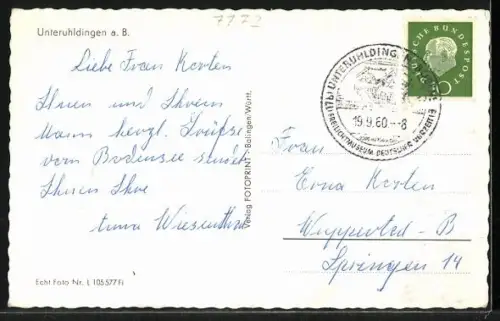 7772
Unteruhldingen a. B.
Liebe Frau Korten
Ihnen und Ihrem
Mann herzl. Grüße
vom Bodensee sendet
Ihnen Ihre
Verlag FOTOPRINT · Balingen/Württ.
Echt Foto Nr. L 105577 Fi
UNTERUHLDINGEN
19.9.60.--8
DEUTSCHE BUNDESPOST
Frau
Erna Korten
Wuppertal-B
Springen 14